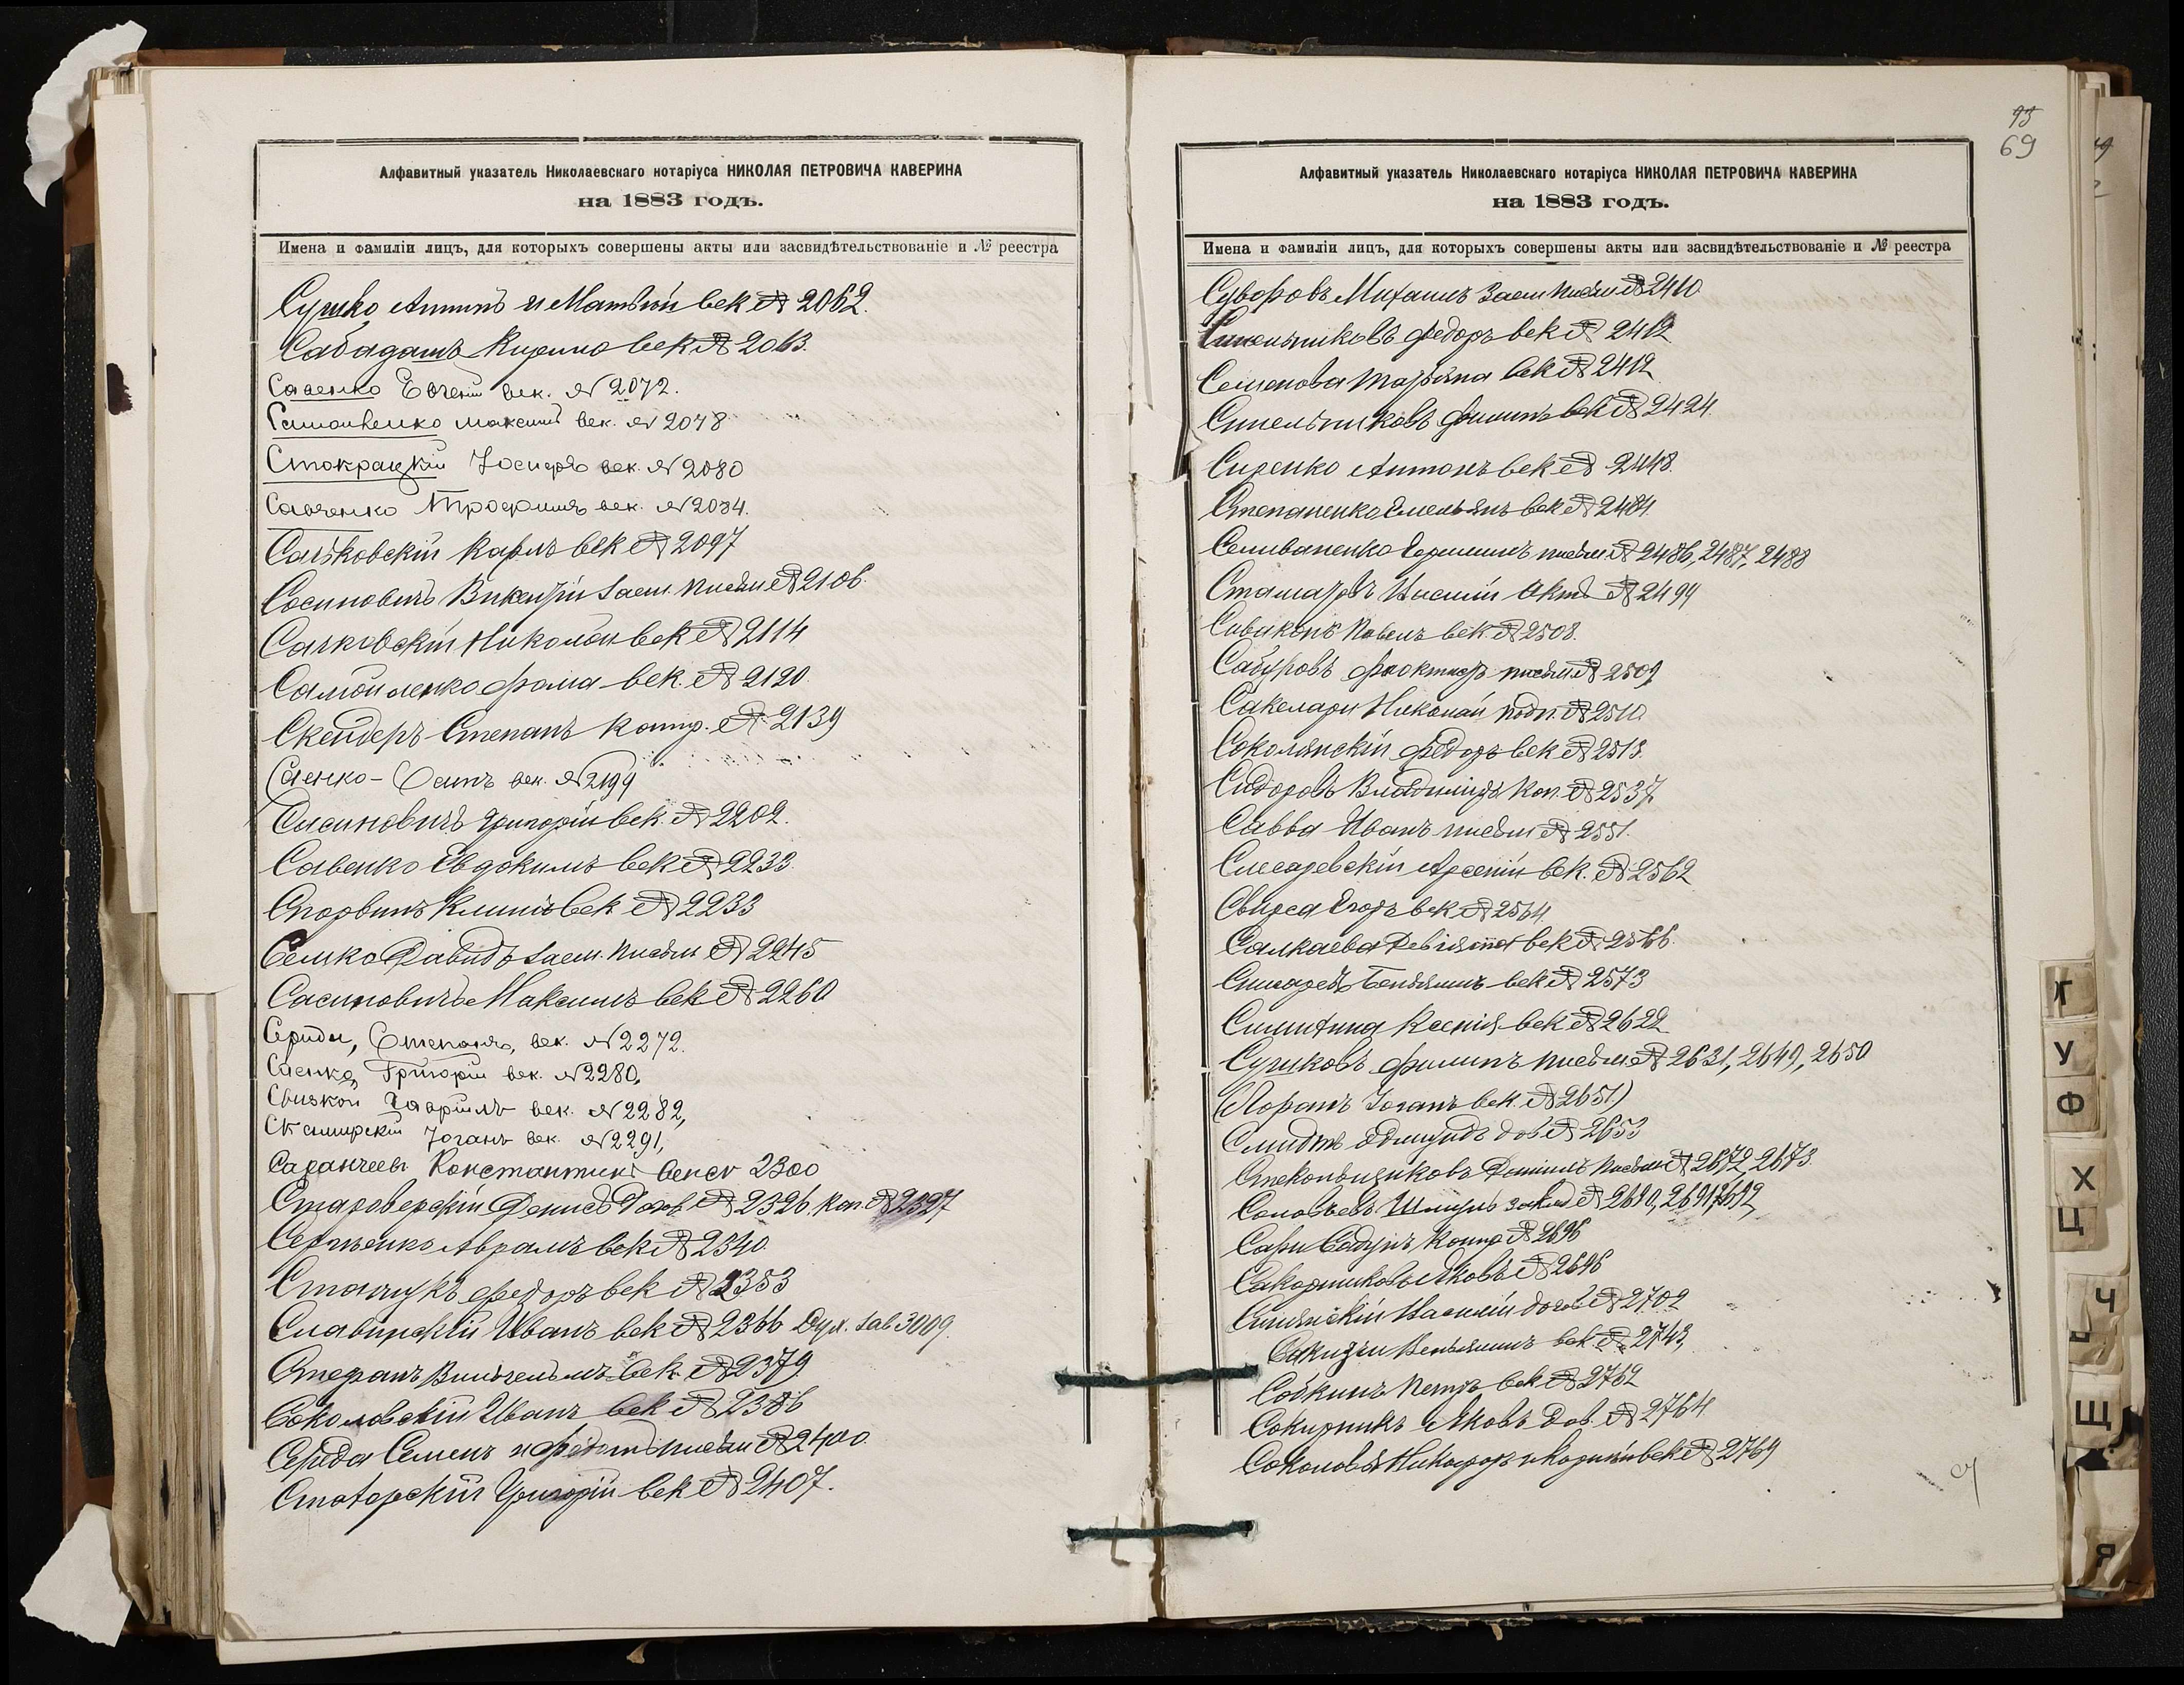 Алфавитный указатель Николаевскаго нотаріуса НИКОЛАЯ ПЕТРОВИЧА КАВЕРИНА
на 1883 годъ.
Имена и фамиліи лицъ, для которыхъ совершены акты или засвидѣтельствованіе и № реестра
Сушко Антонъ и Матвѣй век № 2062.
Сабадашъ Кирило век № 2063.
Савенко Евгеній век. № 2072.
Самойленко Максимъ век. № 2078
Стокрацкій Іосифъ век. № 2080
Савченко Трофимъ век. № 2084.
Сачковскій Карлъ век № 2097
Сосиновичъ Викентій Заем. письм № 2106.
Сачковскій Николай век № 2114
Самойленко Фома век. № 2120.
Скейдеръ Степанъ контр. № 2139
Саенко - Осипъ век. № 2199
Сасиновичъ Григорій век. № 2202.
Савенко Евдокимъ век № 2233.
Климъ век № 2233
Семко Давидъ заем. письм № 2245
Сасиновичъ Максимъ век № 2260
Середи, Степанъ, век. № 2272.
Саенко, Григорій век. № 2280,
Гавріилъ век. № 2282,
Іоганъ век. № 2291,
Саранчеевъ Константинъ 2300
Староверскій Денисъ Догов. № 2326, коп. № 2327
Сергѣенко Аврамъ век № 2340.
Станчукъ Федоръ век № 2353
Иванъ век № 2366 Дух. зав 3009.
Стефанъ Вильгельмъ век № 2379.
Соколовскій Иванъ век № 2386
Середа Семенъ и письм № 2400.
Григорій век № 2407.
93
69
Алфавитный указатель Николаевскаго нотаріуса НИКОЛАЯ ПЕТРОВИЧА КАВЕРИНА
на 1883 годъ.
Имена и фамиліи лицъ, для которыхъ совершены акты или засвидѣтельствованіе и № реестра
Суворовъ Михаилъ Заем письм № 2410
Синельниковъ Федоръ век № 2412
Семенова Татьяна век № 2412
Синельниковъ Филипъ век № 2424.
Сиренко Антонъ век № 2448.
Степаненко Емельянъ век № 2484.
Селиваненко письм № 2486, 2487, 2488
Актъ № 2499
Сивяконъ Павелъ век. № 2508.
Сабуровъ письм № 2509
Сакелари Николай подп. № 2510.
Соколянскій Федоръ век № 2513.
Сидоровъ Владиміръ коп. № 2537.
Савва Иванъ письм № 2551.
Слесаревскій Арсеній век. № 2562
Свирса Егоръ век № 2564.
Салкаева век № 2566.
век № 2573
Ксенія век № 2622
Суриковъ Филипъ письм № 2631, 2649, 2650
(Лоранъ Іоганъ век. № 2651)
Смидтъ Эдмундъ дов № 2653
Стекольщиковъ Даніилъ письм № 2672, 2673.
Соловьевъ Шмуль № 2690, 2691, 2692
Сари контр № 2696
Яковъ № 2696
Василій догов № 2702
Веньяминъ век. № 2743,
Собкинъ Петръ век № 2762
Сокирникъ Яковъ Дов. № 2764
Соколовы Никифоръ и век № 2769
Т
У
Ф
Х
Ц
Ч
Щ
Я